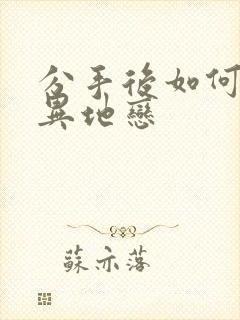 分手後如何
異地戀
蘇亦落